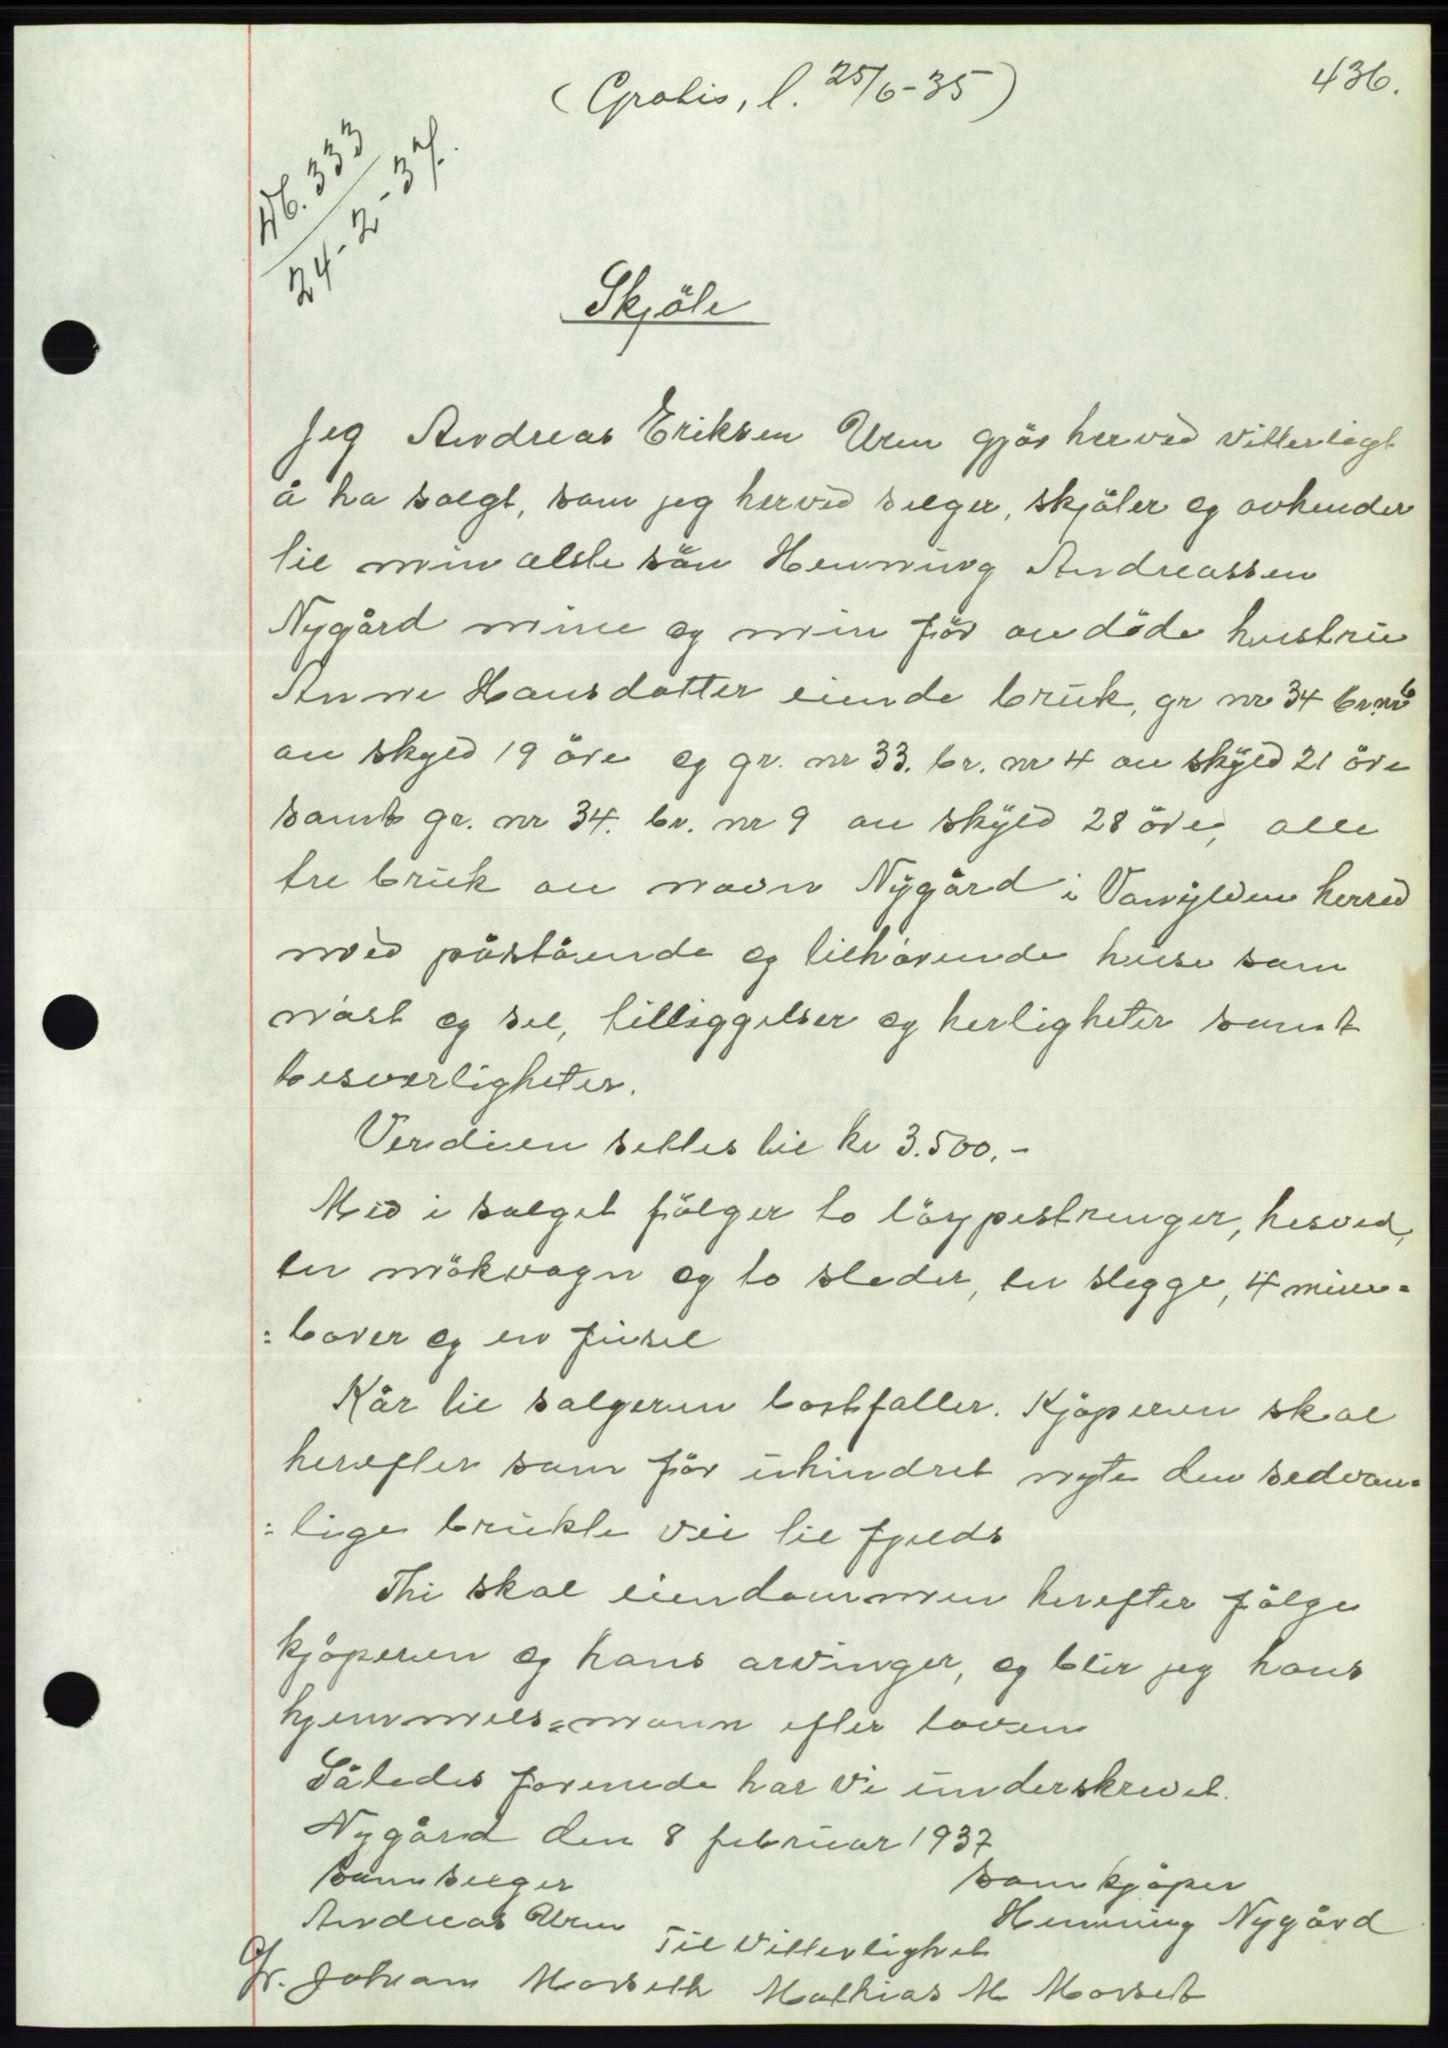 436.
(Gratis, l. 25/6-35)
Nb. 333
24-2-37.
Skjöte
Jeg Andreas Eriksen Uren gjör herved vitterligt
å ha solgt, som jeg herved selger, skjöter og avhender
til min elste sön Henning Andreassen
Nygård mine og min för avdöde hustru
Anne Hansdotter eiende bruk, gr nr 34 br.nr 6
av skyld 19 öre og gr. nr 33. br. nr 4 av skyld 21 öre
samt gr. nr 34. br. nr 9 av skyld 28 öre, alle
tre bruk av navn Nygård i Vanylven herred
med påstående og tilhörende huse som
nöst og sel, tilliggelser og herligheter samt
besverligheter.
Verdien settes til kr 3.500.-
Med i salget fölger to löypestrenger, hesved,
en mökvogn og to sleder, en slegge, 4 mine-
:borer og en fusel
Kår til selgeren bortfaller. Kjöperen skal
herefter som för uhindret nyte den sedvan-
:lige brukte vei til fjelds
Thi skal eiendommen herefter fölge
kjöperen og hans arvinger, og blir jeg hans
hjemmels-mann efter loven
Således forenede har vi underskrevet.
Nygård den 8 februar 1937
som selger som kjöper
Andreas Uren Henning Nygård
Til Vitterlighet
Johan Morseth Mathias M Morset